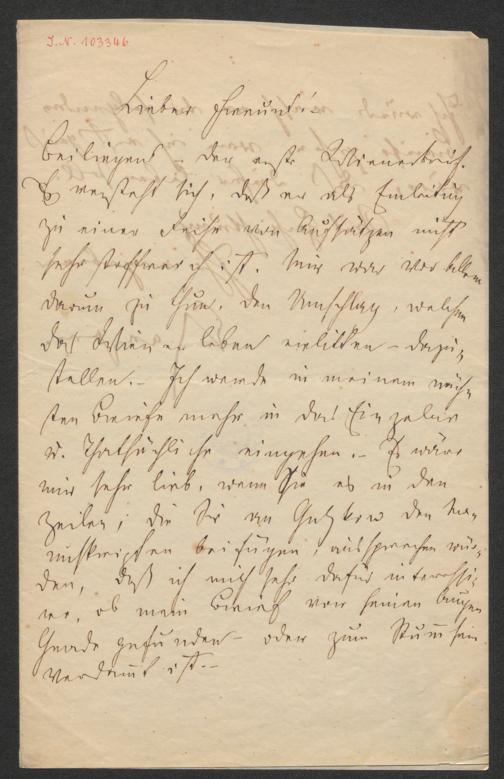 I. N. 103346
Lieber Freund!
Beiliegend – der erste Wienerbrief.
Es versteht sich, daß er als Einleitung
zu einer Reihe von Aufsätzen nicht
sehr stoffreich ist. Mir war vor allem
darum zu thun, den Umschlag, welchen
das Wiener leben erlitten – darzu-
stellen. – Ich werde in meinem näch-
sten Briefe mehr in das Einzelne
u. Thatsächliche eingehen. – Es wäre
mir sehr lieb, wenn Sie es in den
Zeilen, die Sie an Gutzkow den Ma-
nuskripten beifügen, aussprechen wür-
den, daß ich mich sehr dafür interessi-
re, ob mein Brief vor seinen Augen
Gnade gefunden – oder zum Stummsein
verdammt ist. –